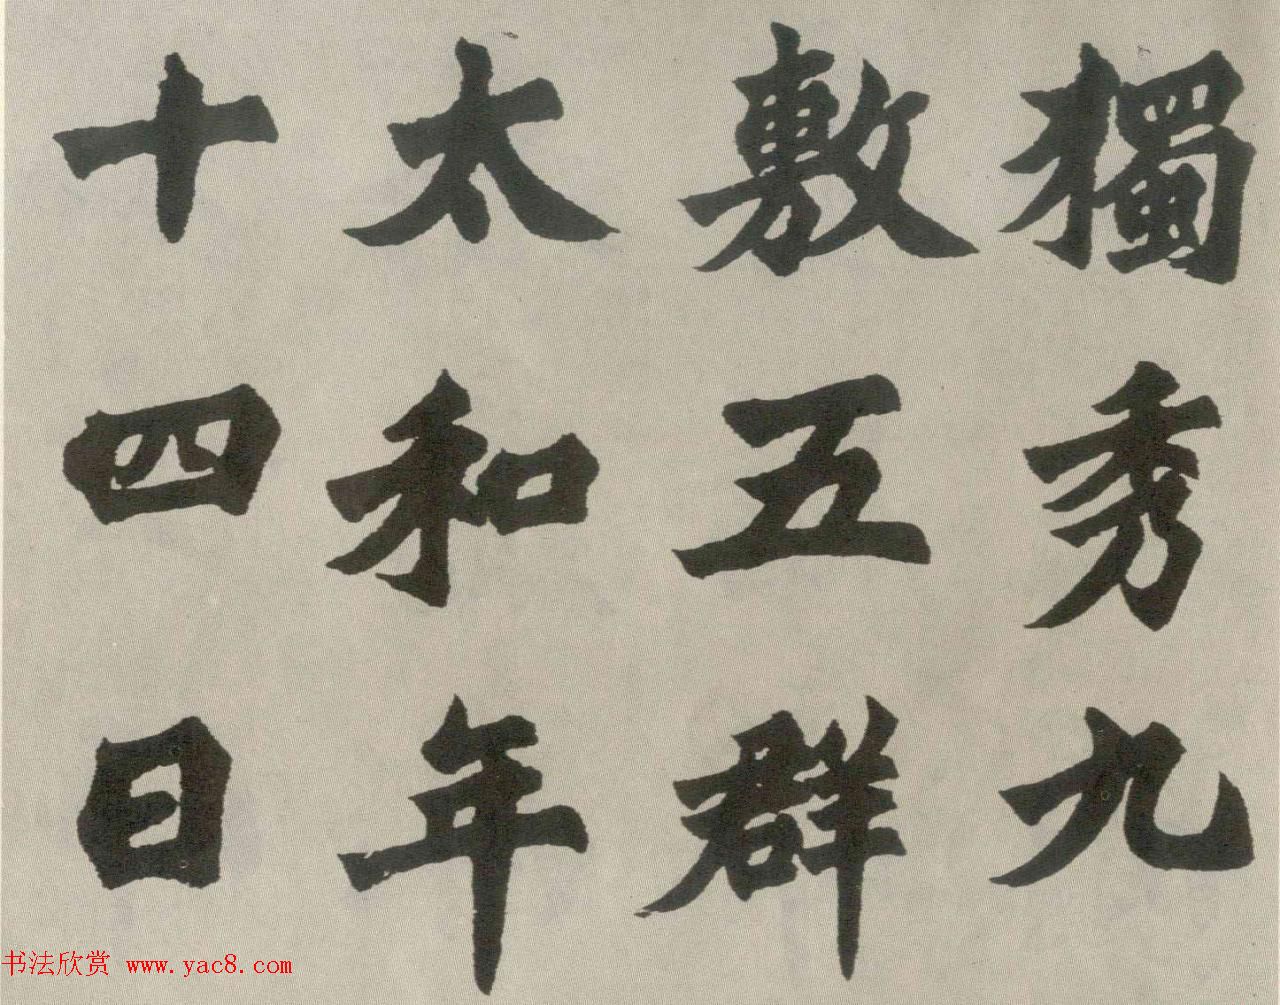 獨秀九
敷五群
太和年
十四日
书法欣赏 www.yac8.com